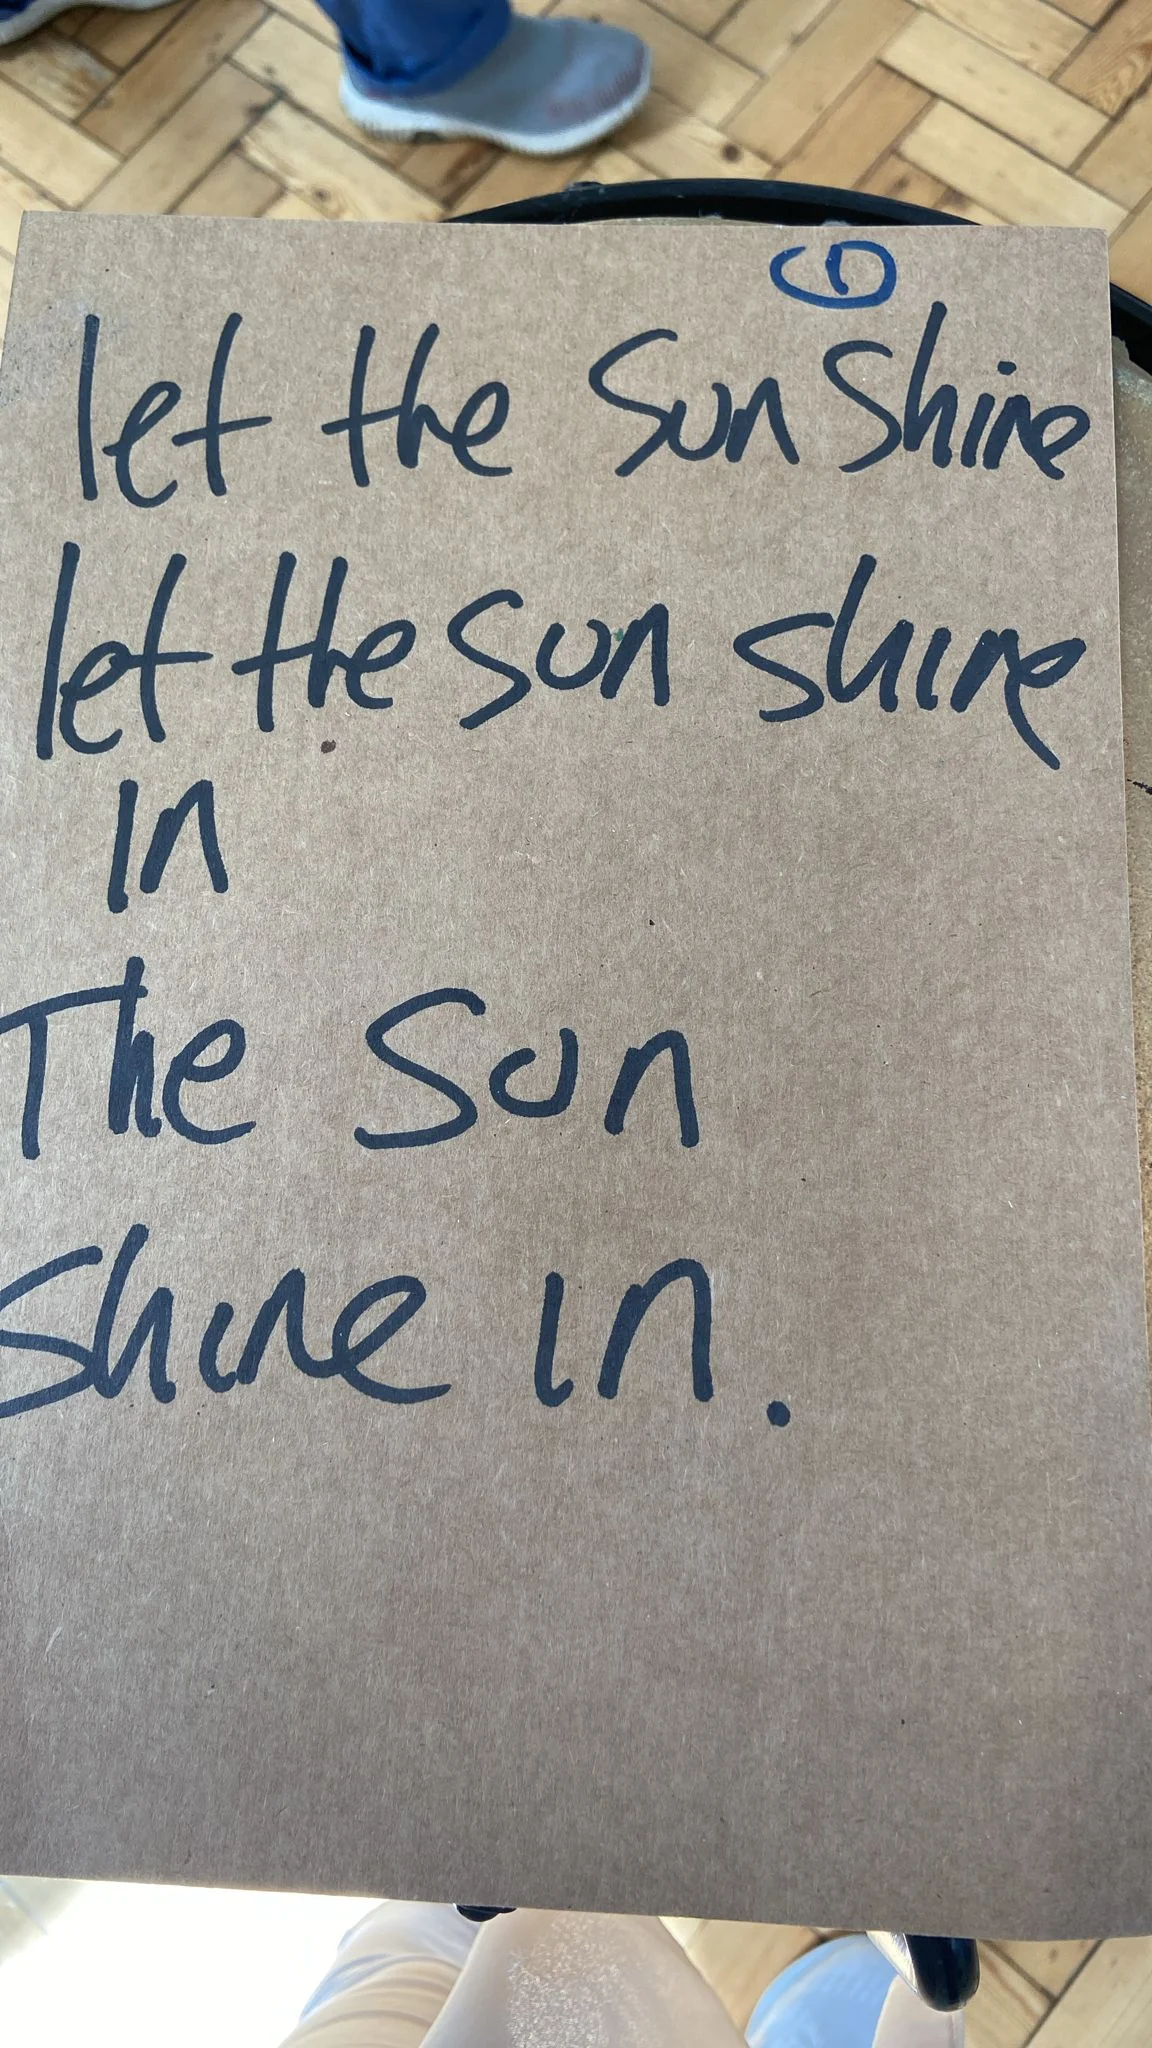 let the Sun Shine
let the sun shine
in
The Sun
Shine in.